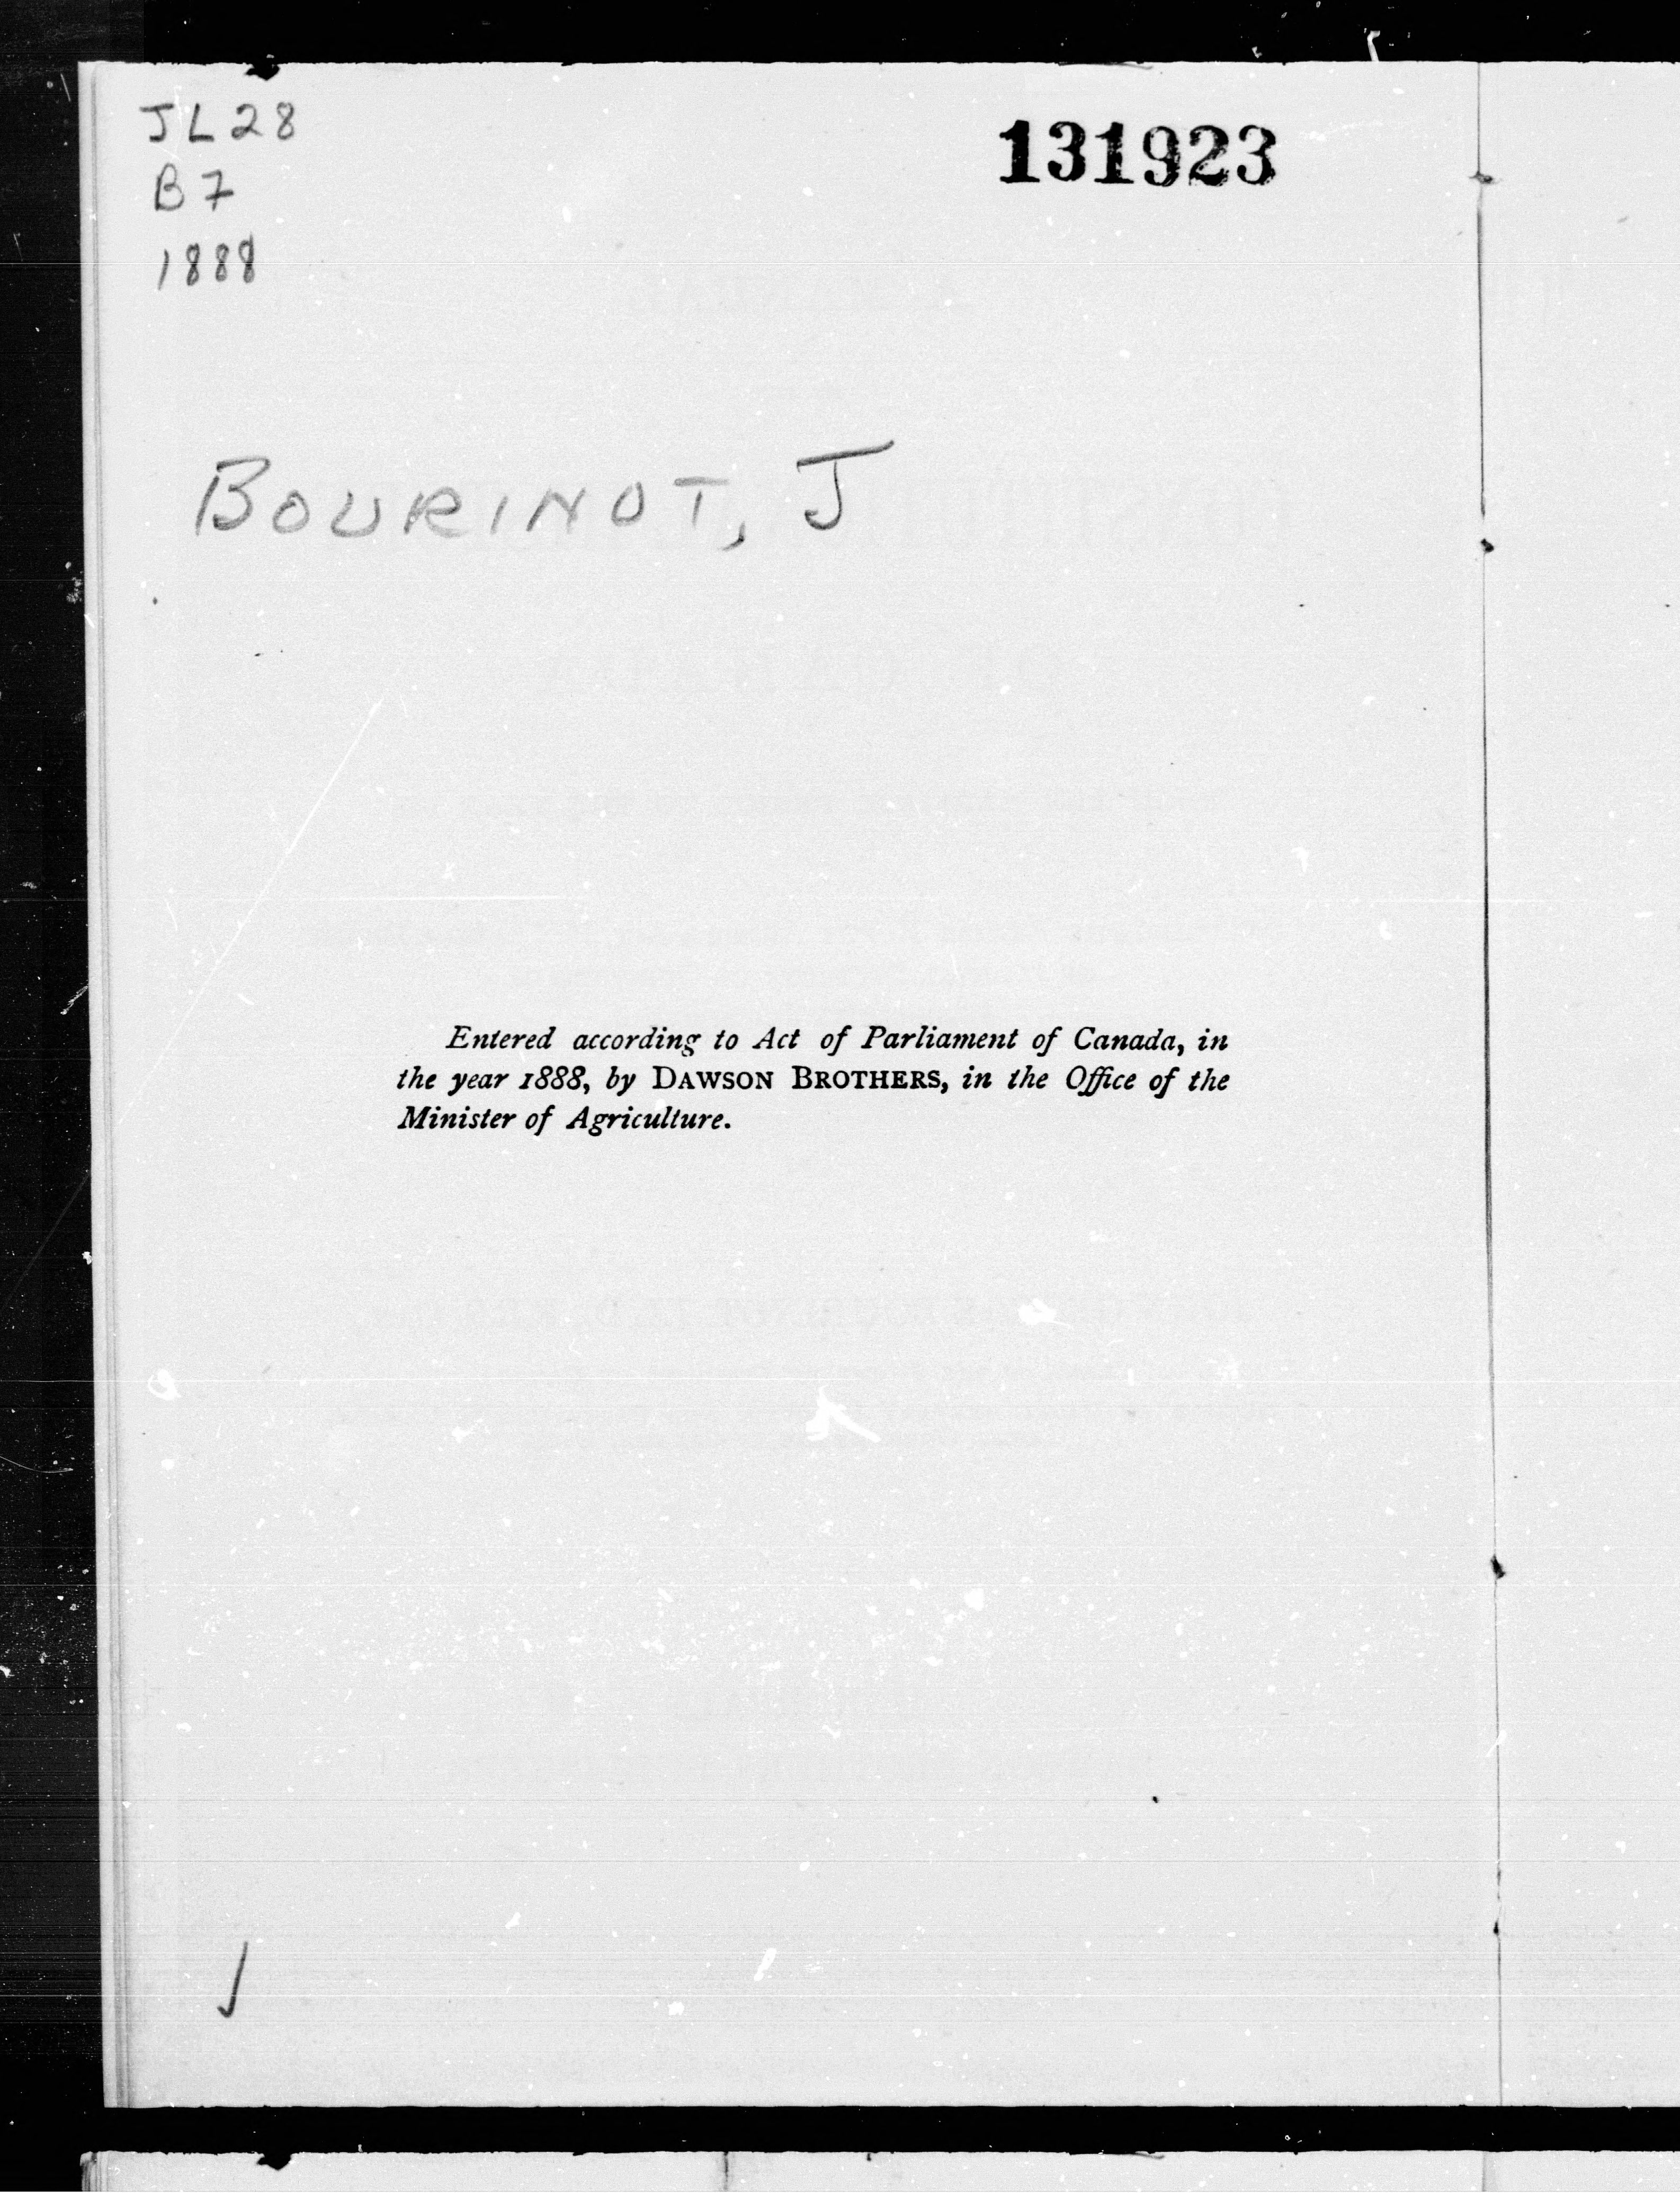 JL28
B7
1888
131923
BOURINOT, J
Entered according to Act of Parliament of Canada, in
the year 1888, by DAWSON BROTHERS, in the Office of the
Minister of Agriculture.